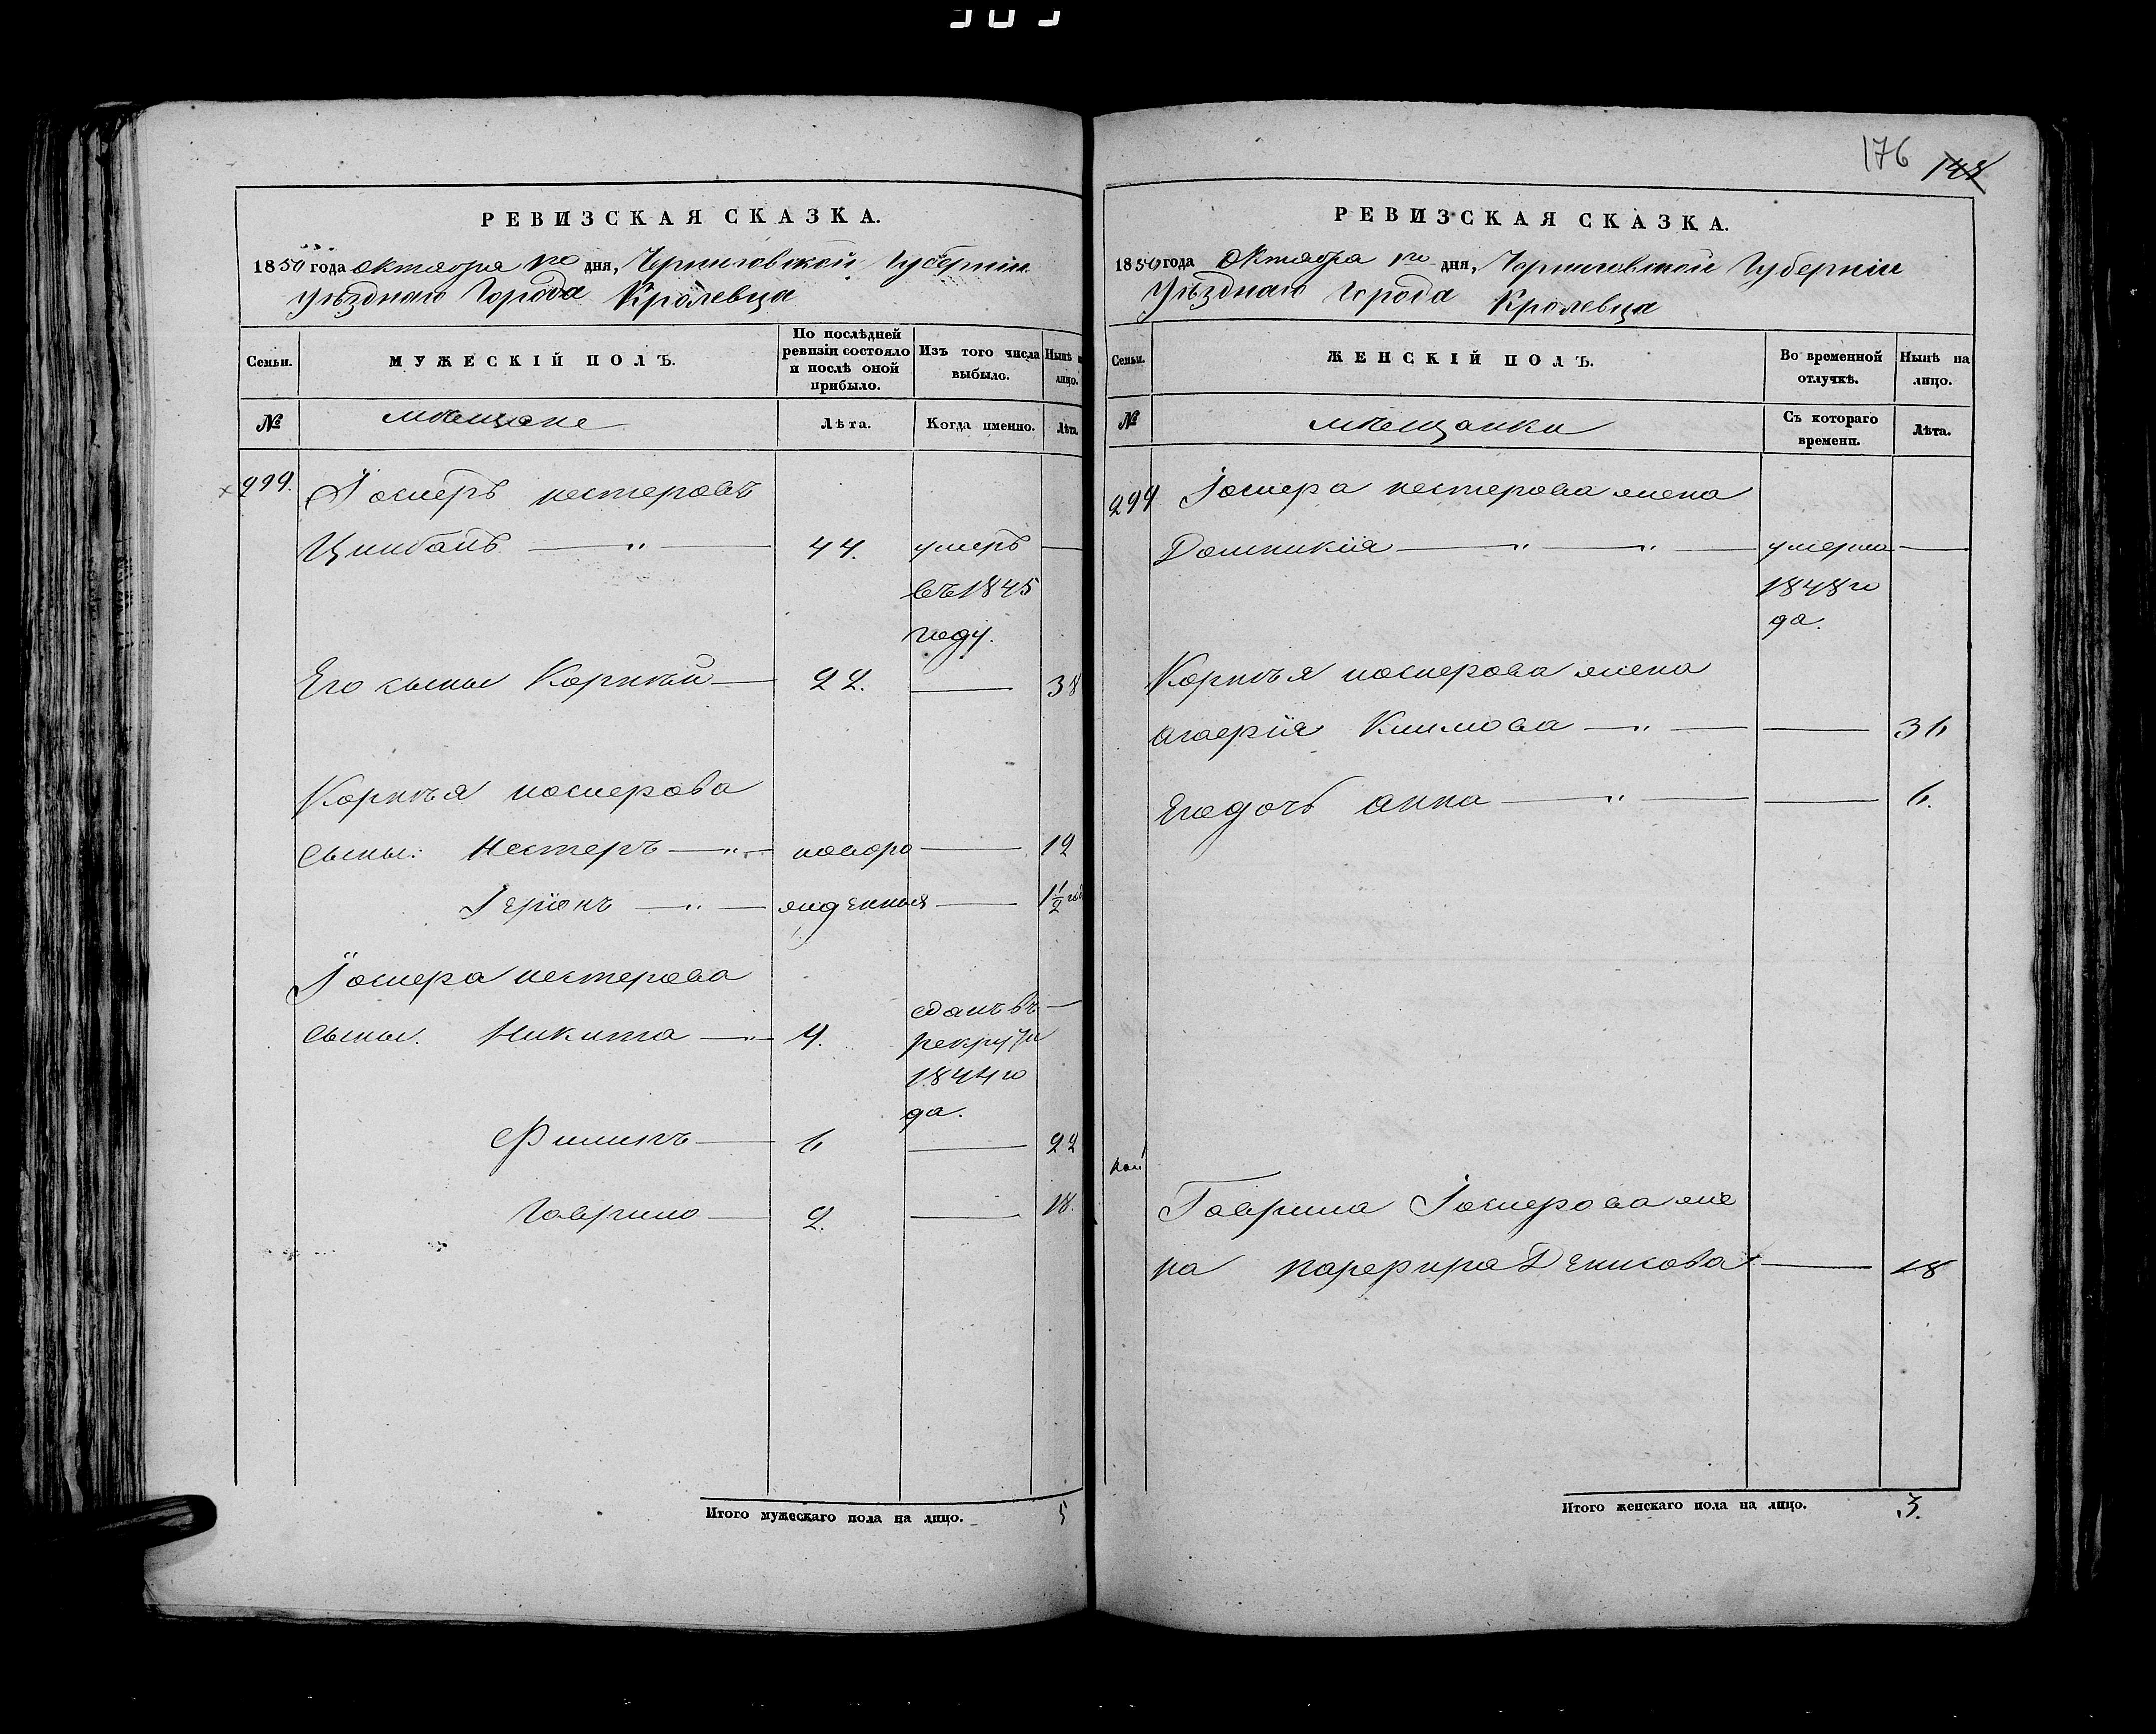 176 148
РЕВИЗСКАЯ СКАЗКА.
1850 года октября 1го дня, Черниговской Губерніи
Уѣзднаго Города Кролевца
Семьи.
МУЖЕСКІЙ ПОЛЪ.
По послѣдней ревизіи состояло и послѣ оной прибыло.
Изъ того числа выбыло.
Нынѣ на лицо.
№
мѣщане
Лѣта.
Когда именно.
Лѣта.
299. Іосифъ нестеровъ
44. умеръ —
въ 1845
году.
Его сынъ Корнѣй — 22. — 38
Корнѣя
сыны: Нестеръ — новоро — 12
жденныя — 1 1/2 год
нестерова
сданъ въ —
сыны. Никита — 4. рекруты
1844 го
да.
Филипъ — 6 — 22
Гаврило — 2. — 18.
Итого мужескаго пола на лицо. 5
РЕВИЗСКАЯ СКАЗКА.
1850 года Октября 1го дня, Черниговской Губерніи
Уѣзднаго Города Кролевца
Семьи.
ЖЕНСКІЙ ПОЛЪ.
Во временной отлучкѣ.
Нынѣ на лицо.
№
мѣщанки
Съ котораго времени.
Лѣта.
299 нестерова жена
Домникія — умерла —
1848 го
да.
Корнѣя жена
Климова — — 36
Егодочь анна — — 6.
Гаврила жe
на Денисова — 18
Итого женскаго пола на лицо. 3.